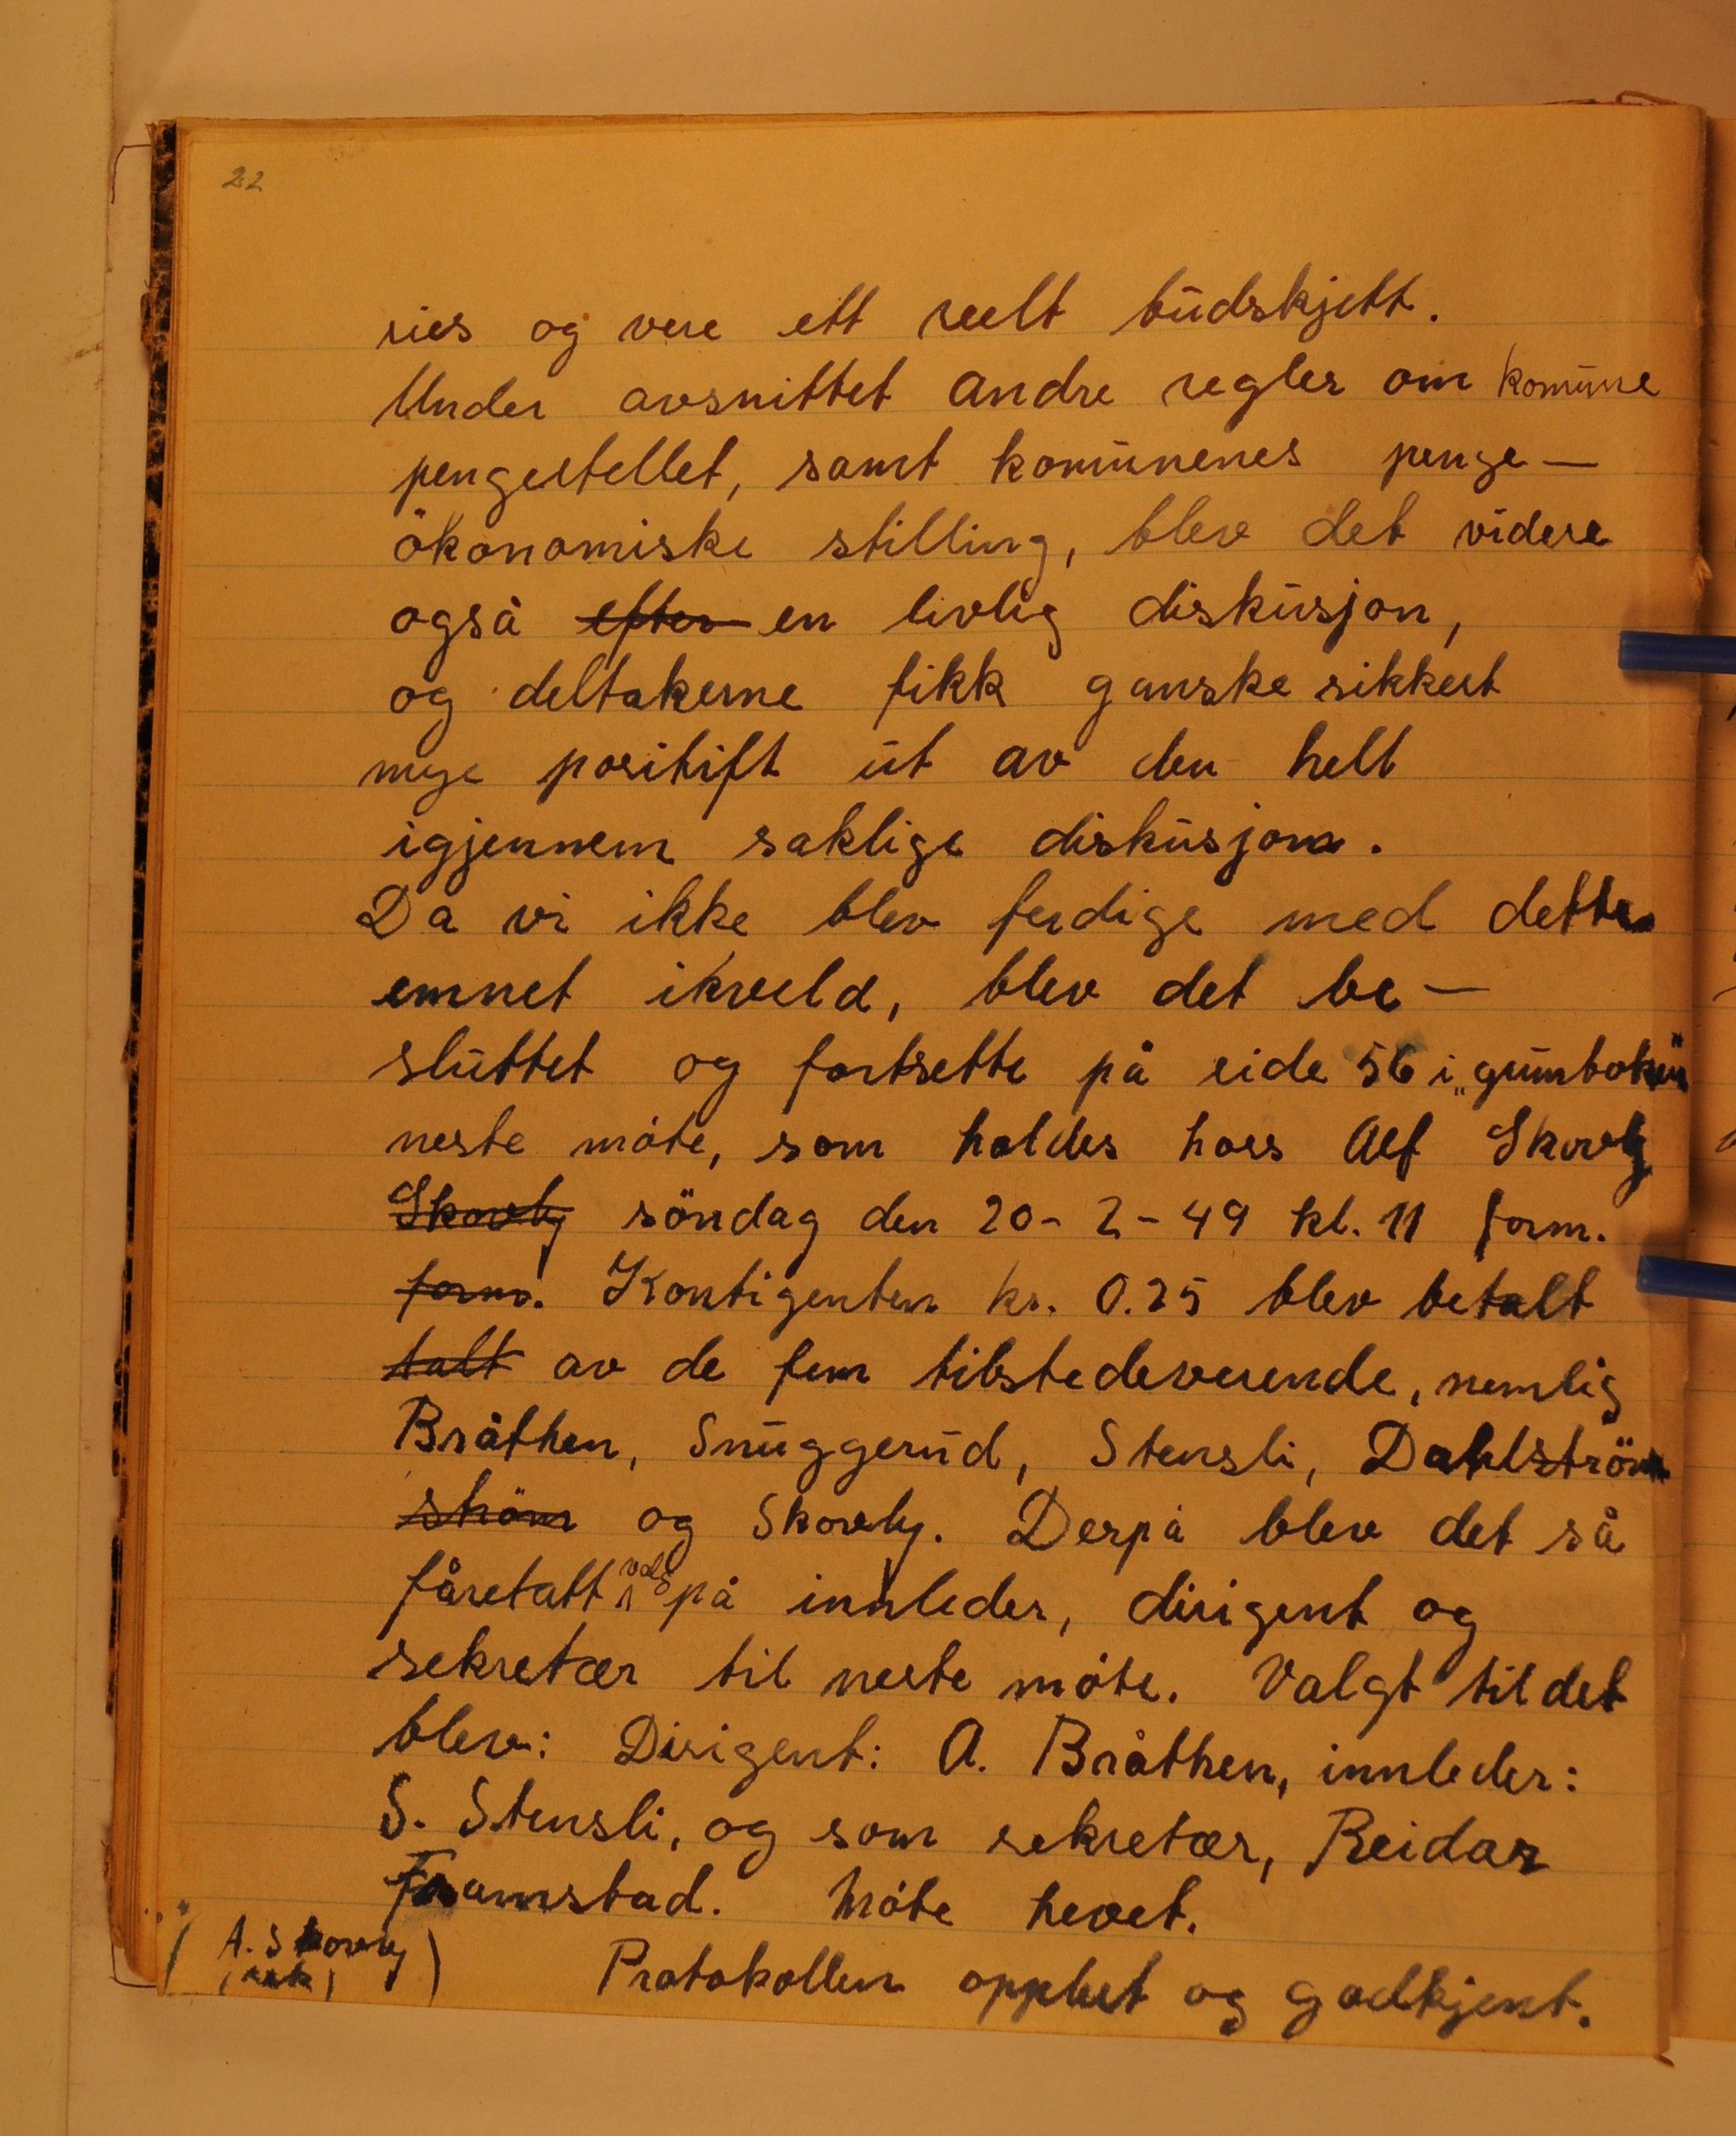 22
sies og vere ett reelt budskjett.
Under avsnittet andre regler om komune
pengestellet, samt komunenes penge—
ökonomiske stilling, blev det videre
også efter en livlig diskusjon,
og deltakerne fikk ganske sikkert
mye positift ut av den helt
igjennem saklige diskusjon.
Da vi ikke blev ferdige med dette
emnet ikveld, blev det be—
sluttet og fortsette på side 56 i „gumboken"
neste möte, som holdes hoss Alf Skovly
Skovly söndag den 20-2-49 kl. 11 form.
form. Kontigenten kr. 0.25 blev betalt
talt av de fem tilstedeverende, nemlig
Bråthen, Snuggerud, Stensli, Dahlström
ström og Skovly. Derpå blev det så
fåretatt valg på innleder, dirigent og
sekretær til neste möte. Valgt til det
blev: Dirigent: A. Bråthen, innleder:
S. Stensli, og som sekretær, Reidar
Framstad. Möte hevet.
A. Skovly
(sek)
Protokollen opplest og godkjent.